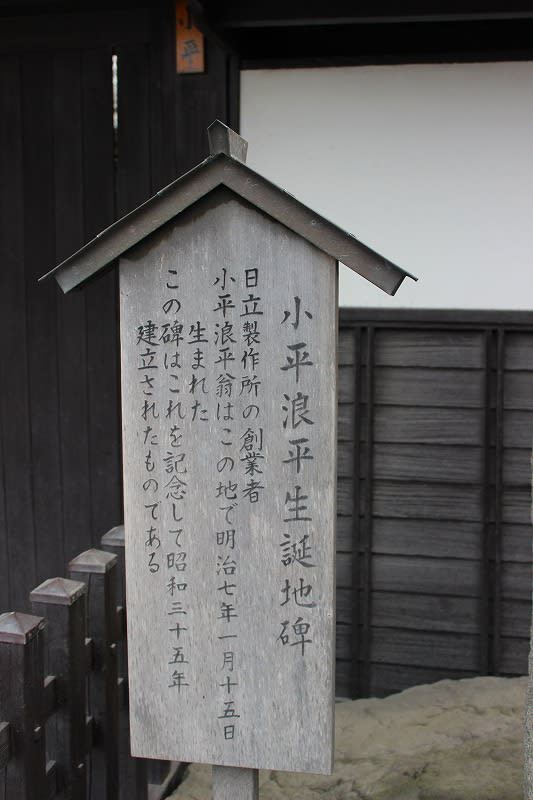 小平
小平浪平生誕地碑
日立製作所の創業者
小平浪平翁はこの地で明治七年一月十五日
生まれた
この碑はこれを記念して昭和三十五年
建立されたものである